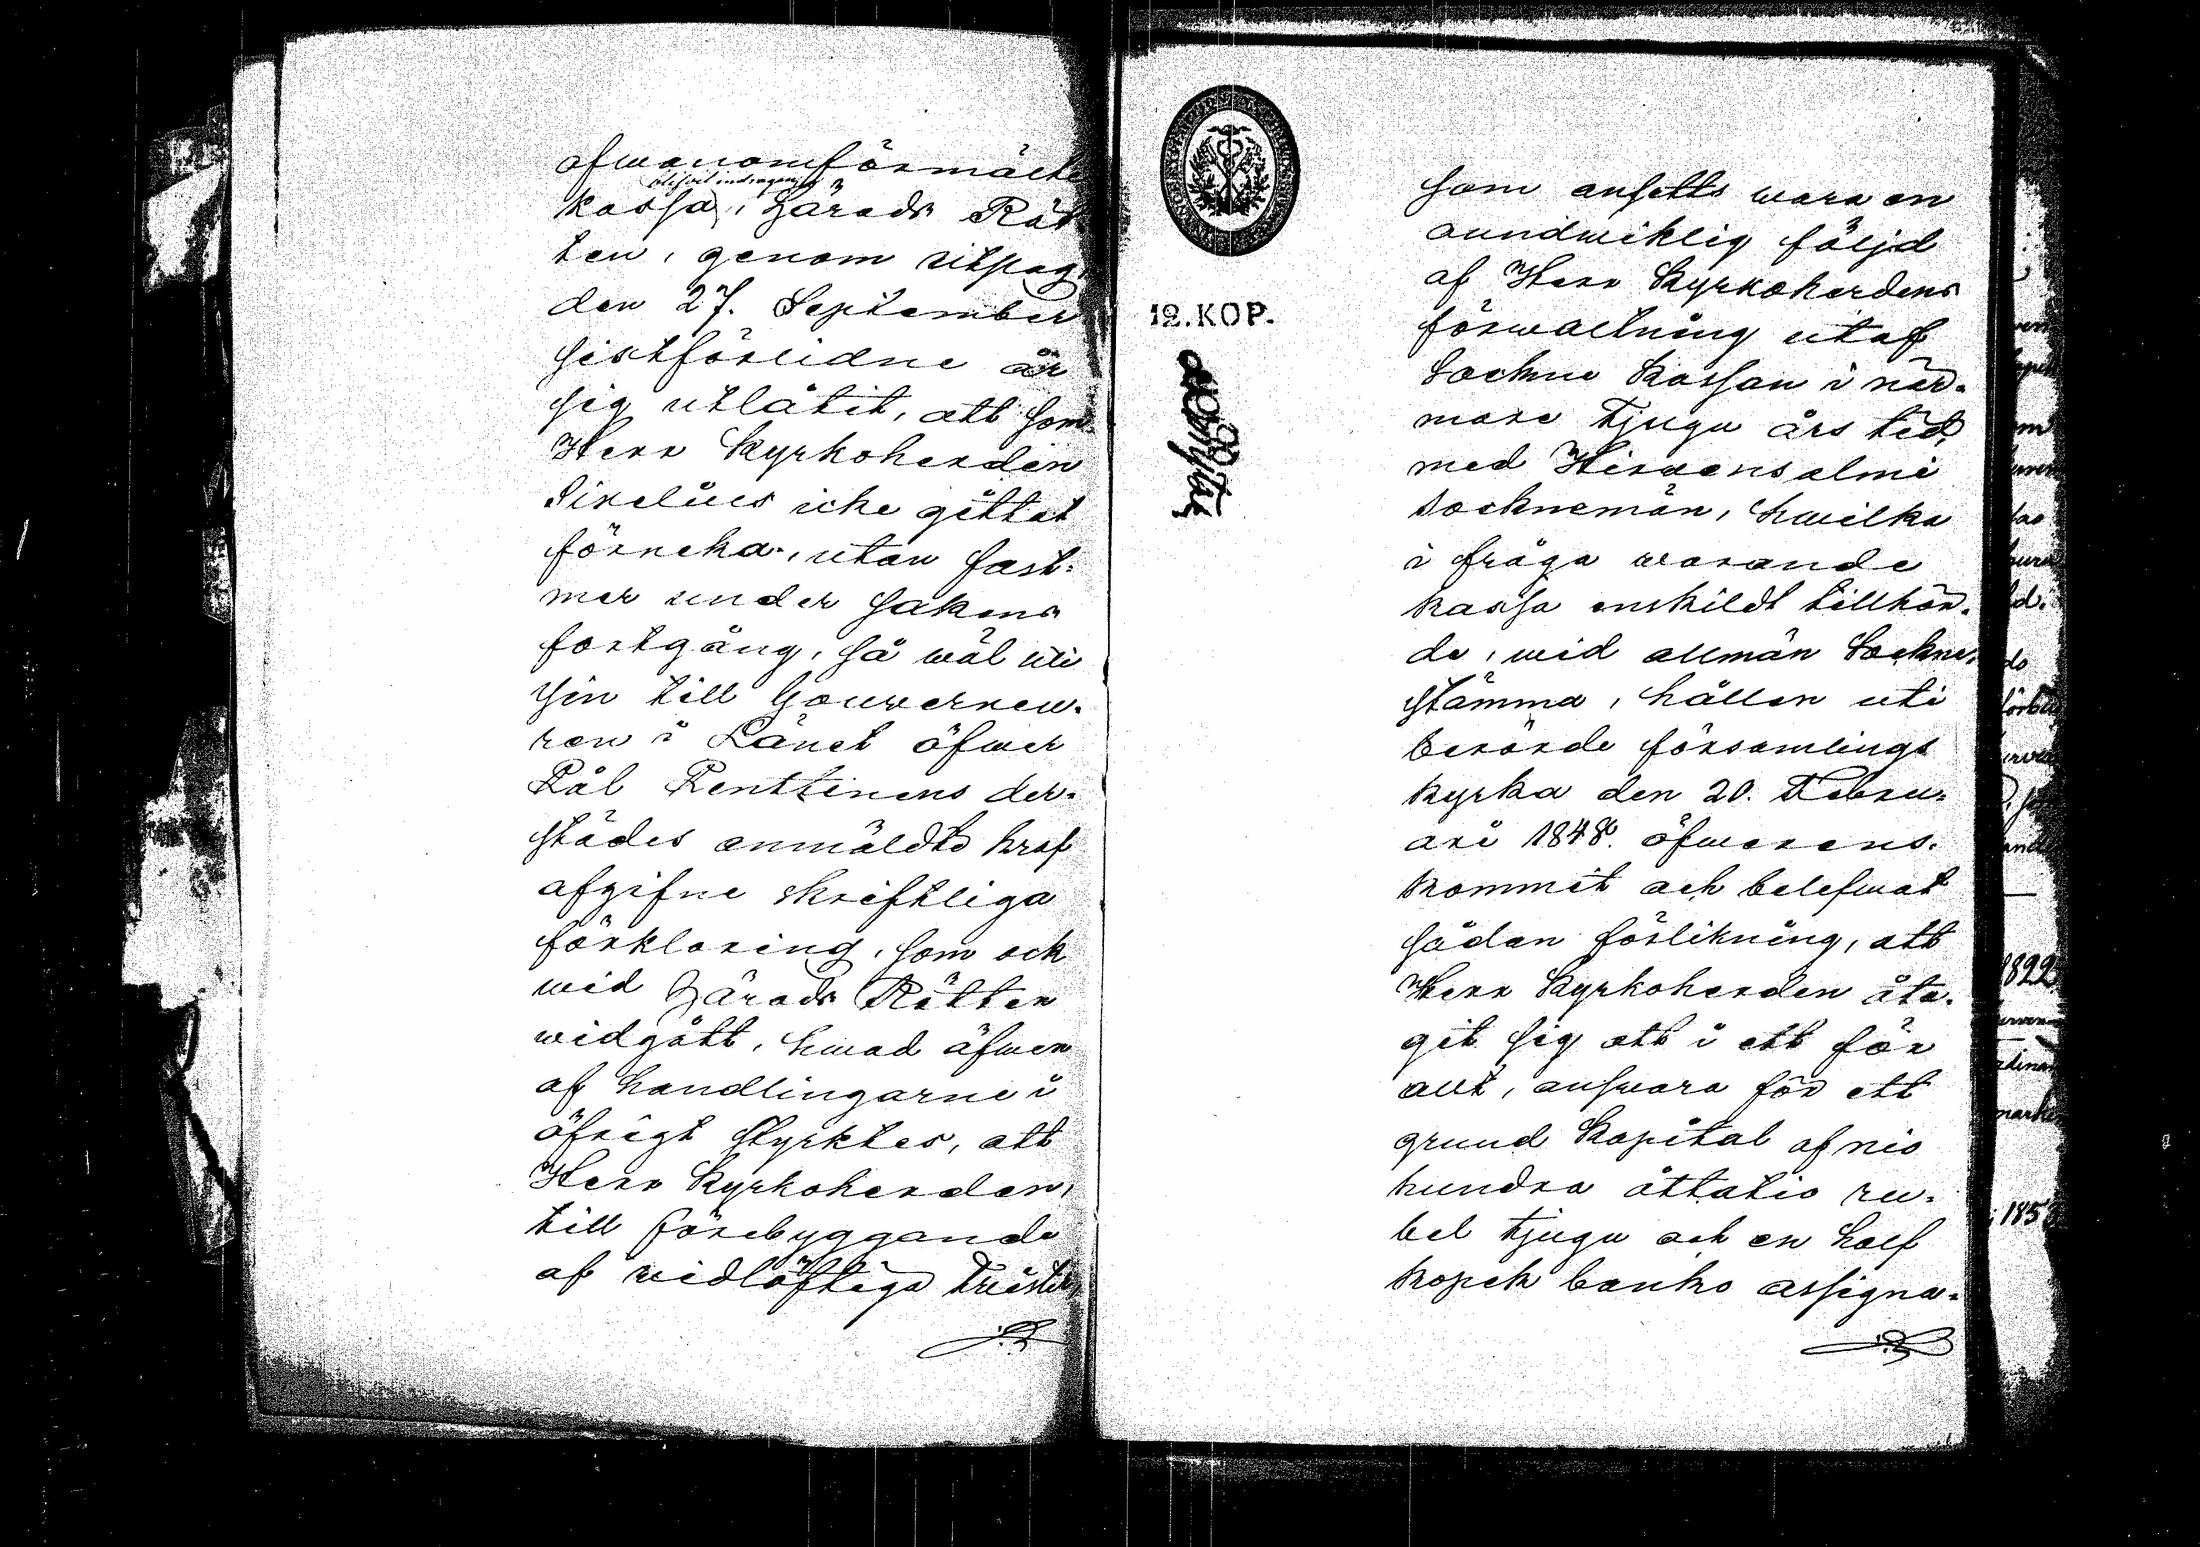 ofwanomförmälte
blifvit indragen
kassa, Härads Rät
ten, genom utslag
den 27. September
sistförlidne år
sig utlåtit, att som
Herr Kyrkoherden
Sirelius icke gittat
förneka, utan fast-
mer under sakens
fortgång, så wäl uti
sin till Gouverneu-
ren i Länet öfwer
Pål Penttinens der-
städes anmäldte kraf
afgifne skriftliga
förklaring, som ock
wid Härads Rätten
widgått, hwad äfwen
af handlingarne i
öfrigt styrktes, att
Herr Kyrkoherden,
till förebyggande
af widlöftiga twister,
12. KOP.
som ansetts wara en
oundwiklig följd
af Herr Kyrkoherdens
förwaltning utaf
Sockne Kassan i när-
mare tjugu års tid,
med Hirvensalmi
socknemän, hwilka
i fråga warande
kassa enskildt tillhör-
de, wid allmän Sockne-
stämma, hållen uti
berörde församlings
kyrka den 20. Febru-
ari 1848. öfwerens-
kommit och belefwat
sådan förlikning, att
Herr Kyrkoherden åta-
git sig att i ett för
allt, answara för ett
grund Kapital af nio
hundra åttatio ru-
bel tjugu och en half
kopek banko assigna-
1822
185